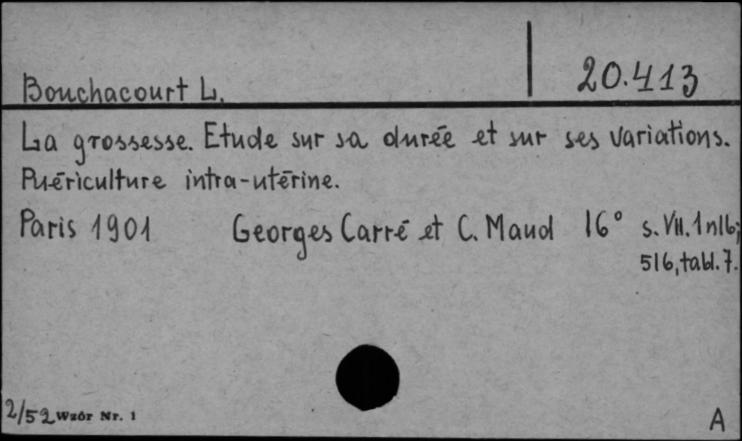 Bouchacourt L. 20.413
La grossesse. Etude sur sa durée et sur ses variations.
Puériculture intra-utérine.
Paris 1901 Georges Carré et C. Maud 16° s. VII. 1nlb;
516, tabl. 7.
2/52 Wzór Nr. 1 A